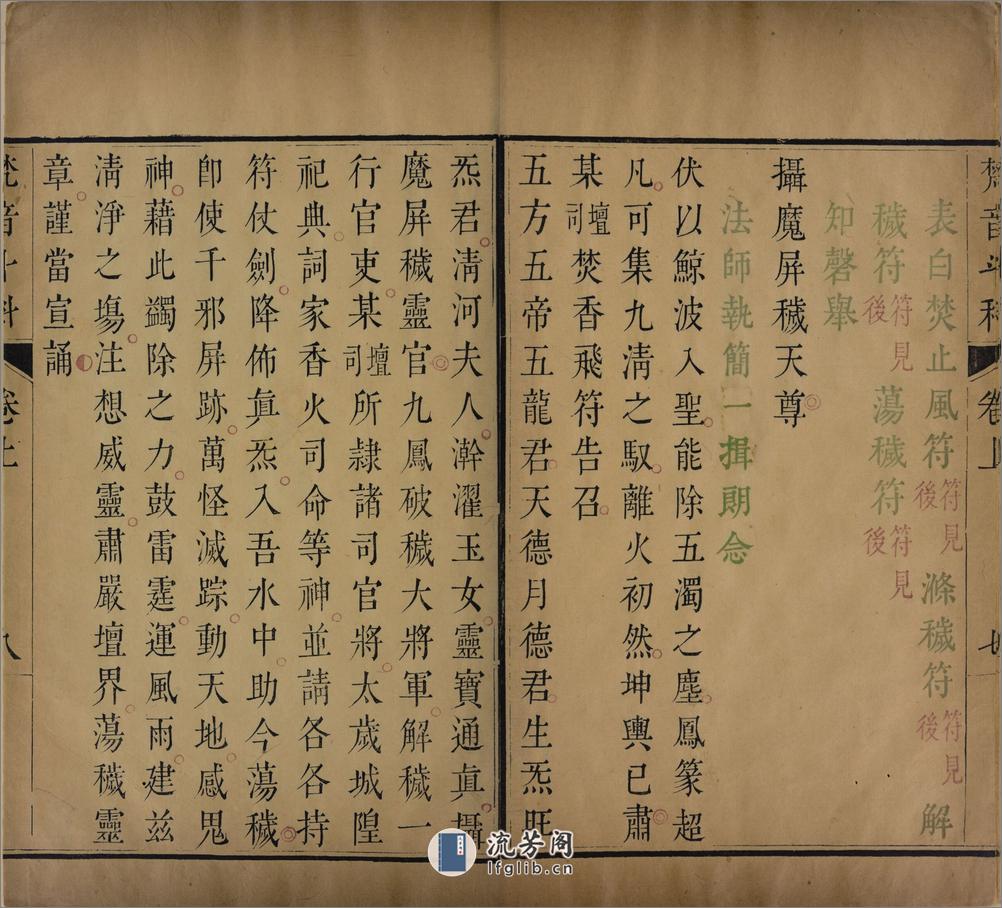 梵音斗科 卷上 七
表白焚止風符符見後 滌穢符符見後 解
穢符符見後 蕩穢符符見後
知磬舉
攝魔屏穢天尊
法師執簡一揖朗念
伏以鯨波入聖能除五濁之塵鳳篆超
凡可集九清之馭離火初然坤輿已肅
某壇司焚香飛符告召
五方五帝五龍君天德月德君生炁旺
炁君清河夫人澣濯玉女靈寶通眞攝
魔屏穢靈官九鳳破穢大將軍解穢一
行官吏某壇司所隷諸司官將太歲城隍
祀典詞家香火司命等神並請各各持
符仗劍降佈眞炁入吾水中助今蕩穢
卽使千邪屏跡萬怪滅踪動天地感鬼
神藉此蠲除之力鼓雷霆運風雨建茲
淸淨之塲注想威靈肅嚴壇界蕩穢靈
章謹當宣誦
梵音斗科 卷上 八
流芳阁
lfglib.cn